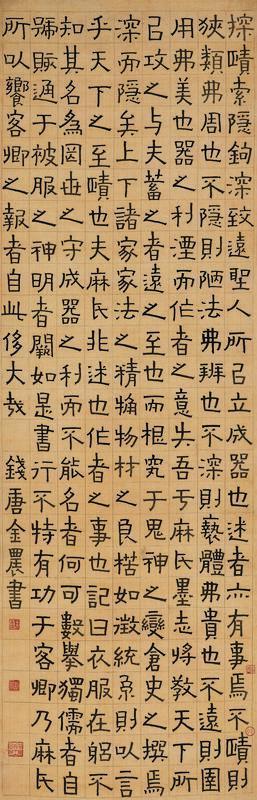 探嘖索隱鉤深致遠聖人所㠯立成器也述者亦有事焉不嘖則
狹類弗周也不隱則陋法弗辨也不深則褻體弗貴也不遠則圉
用弗美也器之利湮而作者之意失吾于麻氏墨志将教天下所
㠯攻之与夫蓄之者遠之至也而根究于鬼神之變倉史之撰焉
深而隱矣上下諸家家法之精觕物材之良楛如徵統系則以言
乎天下之至嘖也夫麻氏非述也作者之事也記曰衣服在躬不
知其名為罔世之守成器之利而不能名者何可數舉獨儒者自
號賑適于被服之神明者闕如是書行不特有功于客卿乃麻氏
所以饗客卿之報者自此侈大哉 錢唐金農書